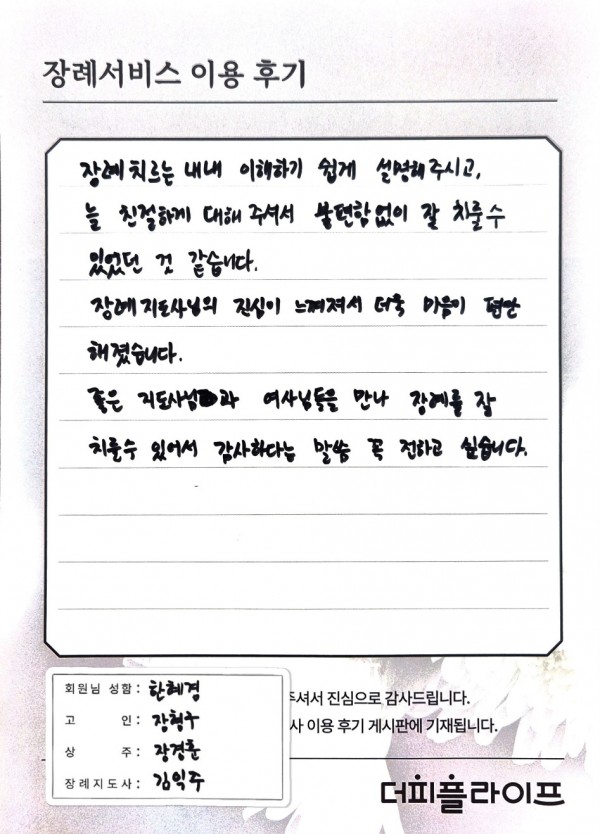 장례서비스 이용 후기
장례 치르는 내내 이해하기 쉽게 설명해 주시고,
늘 친절하게 대해 주셔서 불편함없이 잘 치룰수
있었던 것 같습니다.
장례지도사님의 진심이 느껴져서 더욱 마음이 편안
해졌습니다.
좋은 지도사님과 여사님들을 만나 장례를 잘
치룰수 있어서 감사하다는 말씀 꼭 전하고 싶습니다.
회원님 성함 : 한혜경
고 인 : 장형수
상 주 : 장경훈
장례지도사 : 김익주
주셔서 진심으로 감사드립니다.
사 이용 후기 게시판에 기재됩니다.
더피플라이프